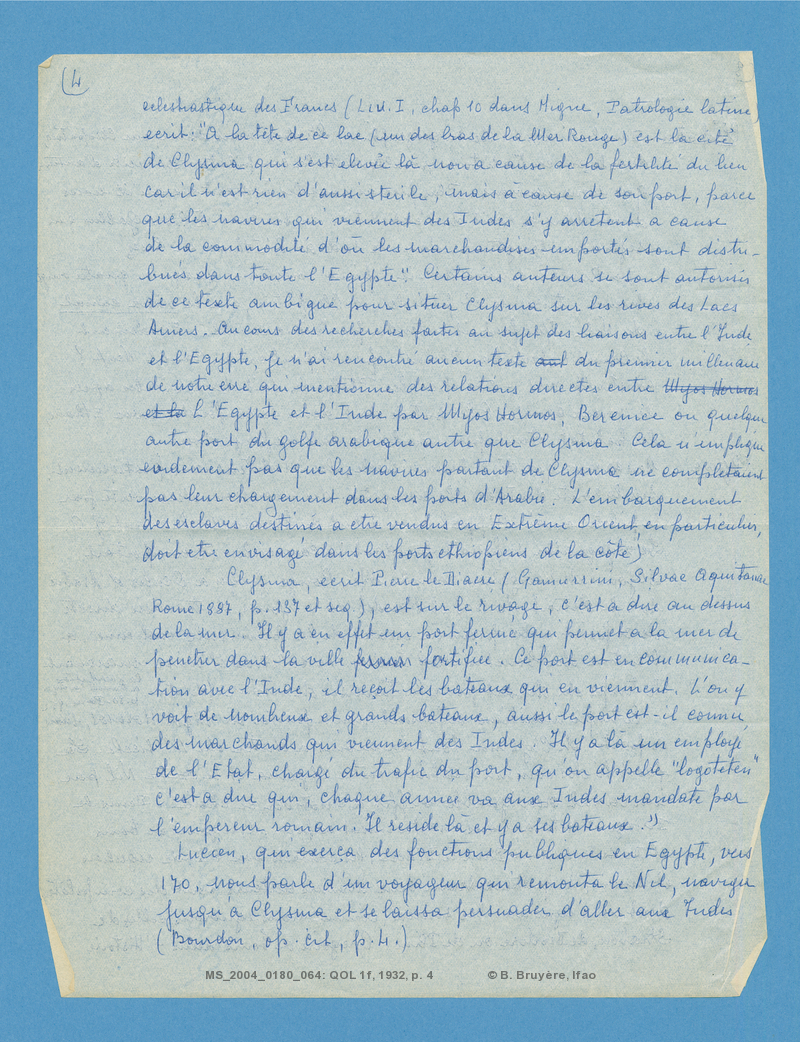 4
eclesiastique des Francs (Liv. I, chap 10 dans Migne, Patrologie latine)
ecrit: "A la tête de ce lac (un des bras de la Mer Rouge) est la cité
de Clysma qui s'est elevée là non a cause de la fertilité du lieu
car il n'est rien d'aussi sterile, mais à cause de son port, parce
que les navires qui viennent des Indes s'y arretent a cause
de la commodité d'où les marchandises emportés sont distri-
bués dans toute l'Egypte". Certains auteurs se sont autorisés
de ce texte ambigue pour situer Clysma sur les rives des Lacs
Amers. Au cours des recherches faites au sujet des liaisons entre l'Inde
et l'Egypte, je n'ai rencontré aucun texte ant du premier millenaire
de notre erre qui mentionne des relations directes entre Myos Hormos
et la L'Egypte et l'Inde par Myos Hormos, Berenice ou quelque
autre port du golfe arabique autre que Clysma. Cela n'implique
evidement pas que les navires partant de Clysma ne completaient
pas leur chargement dans les ports d'Arabie. L'embarquement
des esclaves destinés a etre vendus en Extrême Orient, en particulier,
doit etre envisagé dans les ports ethiopiens de la côte)
Clysma, ecrit Pierre le Diacre (Gamurrini, Silvae Aquitanae
Rome 1887, p. 137 et seq.), est sur le rivage, c'est a dire au dessus
de la mer. Il y a en effet un port fermé qui permet a la mer de
penetrer dans la ville fortifiée. Ce port est en communica-
tion avec l'Inde, il reçoit les bateaux qui en viennent. L'on y
voit de nombreux et grands bateaux, aussi le port est-il connu
des marchands qui viennent des Indes. Il y a là un employé
de l'Etat, chargé du trafic du port, qu'on appelle "logoteten"
c'est a dire qui, chaque année va aux Indes mandaté par
l'empereur romain. Il reside là et y a ses bateaux."
Lucien, qui exerça des fonctions publiques en Egypte, vers
170, nous parle d'un voyageur qui remonta le Nil, navigua
jusqu'à Clysma et se laissa persuader d'aller aux Indes
(Bourdon, op. cit, p. 4.)
MS_2004_0180_064: QOL 1f, 1932, p. 4 © B. Bruyère, Ifao